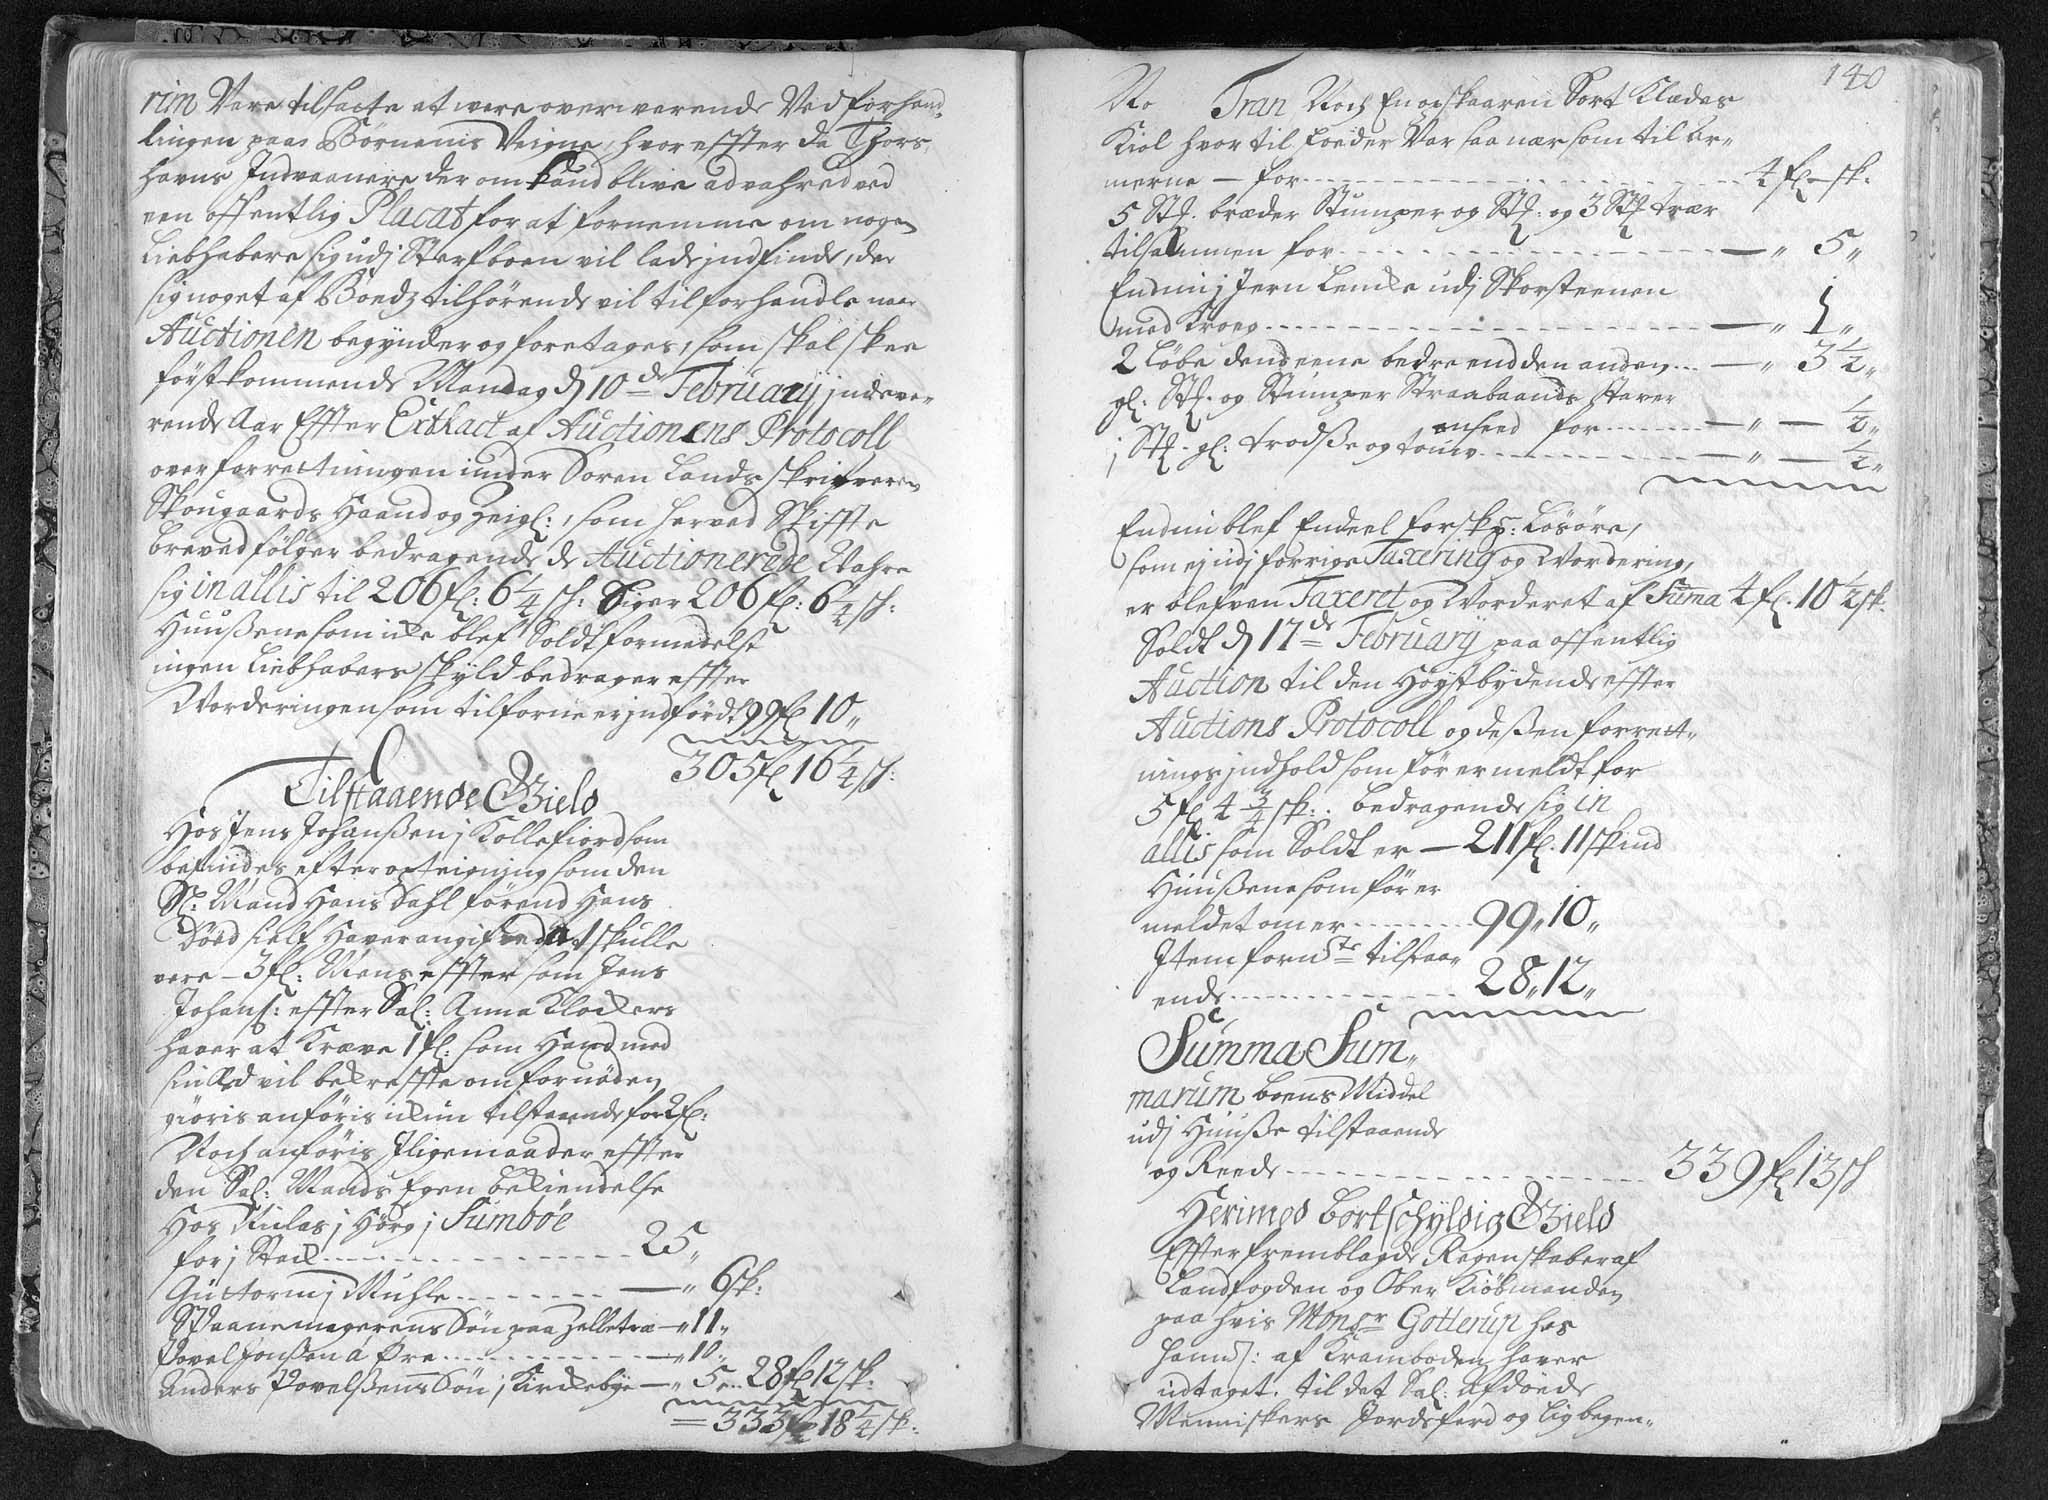 rim Være tilsatte at were overwærende Ved forhand-
lingen paa Börnenis Veigne, hvor effter da Thors-
havns Indvaanere der om kund blive advahred ved
een offentlig Placat for at fornemme om nogen
Liebhabere sig udj Sterfboen vil lade jndfinde, der
sig noget af Boedz tilhörende vil tilforhandle naar
Auctionen begynder og foretages, som skal skee
först kommende Mandag d 10de February jndevæ-
rende Aar Effter Extract af Auctionens Protocoll
over forretningen under Soren Landsskrifveren
Skougaards Haand og Zeigl:, som herved Skiffte
breved fölger bedragende de Auctionerede Vahre
sig in allis til 206 fl: 6 1/4 sk: Siger 206 fl: 6 1/4 sk:
Huußene som icke blef Soldt formedelst
ingen Liebhabers skyld bedrager effter
Worderingen som tilforne er jndfördt 99 fl 10„
305 fl 16 1/4 sk:
Tilstaaende Gield
Hos Jens Johanßen j Kollefiord som
befindes efter opteigning som den
Sl: Mand Hans Dahl förend Hans
Död sielf Haver angifved at skulle
være - 3 fl: Mens effter som Jens
Johanß: effter Sal: Anna Klockers
haver at Kræve 1 fl: som Hand med
sin Eed vil bekreffte om fornöden
giöris anföris ickun tilstaaende for 2 fl:
Noch anföris Jligemaader effter
den Sal: Mands Egen bekiendelse
Hos Niclas j Hörg j Sumböe
for j Stack - - - 25„
Guttorm j Muhle - - - — „ 6 sk:
Svaanemagerens Sön paa Zelletræ — „ 11„
Povel Jonßen a Öre - - - — „ 10„
Anders Povelßens Sön j Kirckebye — „ 5„ . . 28 fl 12 sk:
= 333 fl 18 1/4 sk:
140
No Tran Noch En opskaaren Sort Klædes
Kiol hvor til Foeder Var saa nær som til Er-
merne — for - - - 4 fl — sk:
5 St: bræder Stumper og St: og 3 St: trær
tilsammen for - - - — „ 5„
Endnu j Jern Lencke udj Skorsteenen
med Kroeg - - - — „ 1„
2 Löbe dend eene bedre end den anden . . — „ 3 1/2„
gl: St: og Stumper Straabaands staver
anseed for - - - — „ — 1/2„
j St: gl: trodße og touv - - - — „ — 1/2„
Endnu blef Endeel forsk: Lösöre,
som ej udj forrige Taxering og Wordering,
er blefven Taxeret og Worderet af Suma 4 fl. 10 1/2 sk:
Soldt d 17de February paa offentlig
Auction til den Höystbydende effter
Auctions Protocoll og deßen forret-
nings jndhold som för er meldt for
5 fl 4 3/4 sk: bedragende sig in
allis som Soldt er — 211 fl. 11 skind
Huußene som för er
meldet om er - - - 99„10„
Jtem fornte tilstaa-
ende - - - 28„12„
Summa Sum-
marum boens Middel
udj Huuße tilstaaende
og Reede - - - 339 fl 13 sk
Herimod bortschyldig Gield
Effter fremblagde Regenskaber af
Landfogden og Ober Kiöbmanden
paa hvis Monsr Gotterup hos
hannß: af Kramboden haver
udtaget. til det Sal: Afdöede
Menniskers Jordsferd og ligbegen-